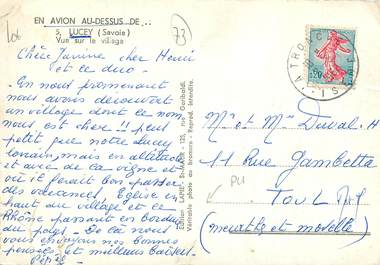 Lot
73
EN AVION AU-DESSUS DE...
5. LUCEY (Savoie)
Vue sur le village
Chère Janine cher Henri
et le duo -
En nous promenant
nous avons découvert
un village dont le nom
nous est cher. Il peut
petit que notre Lucey
lorrain, mais en altitude
et avec de la vigne et
où il ferait bon passer
des vacances. Eglise en
haut du village et le
Rhône passant en bordure
du pays - De là nous
vous envoyons nos bonnes
pensées et meilleurs baisers
Editions LAPIE, St-MAUR - 123, rue Garibaldi.
Véritable photo au bromure - Reprod. Interdite.
0,20
Mr et Mme Duval. H
11 Rue Gambetta
PLI
TOUL
(meurthe et moselle)